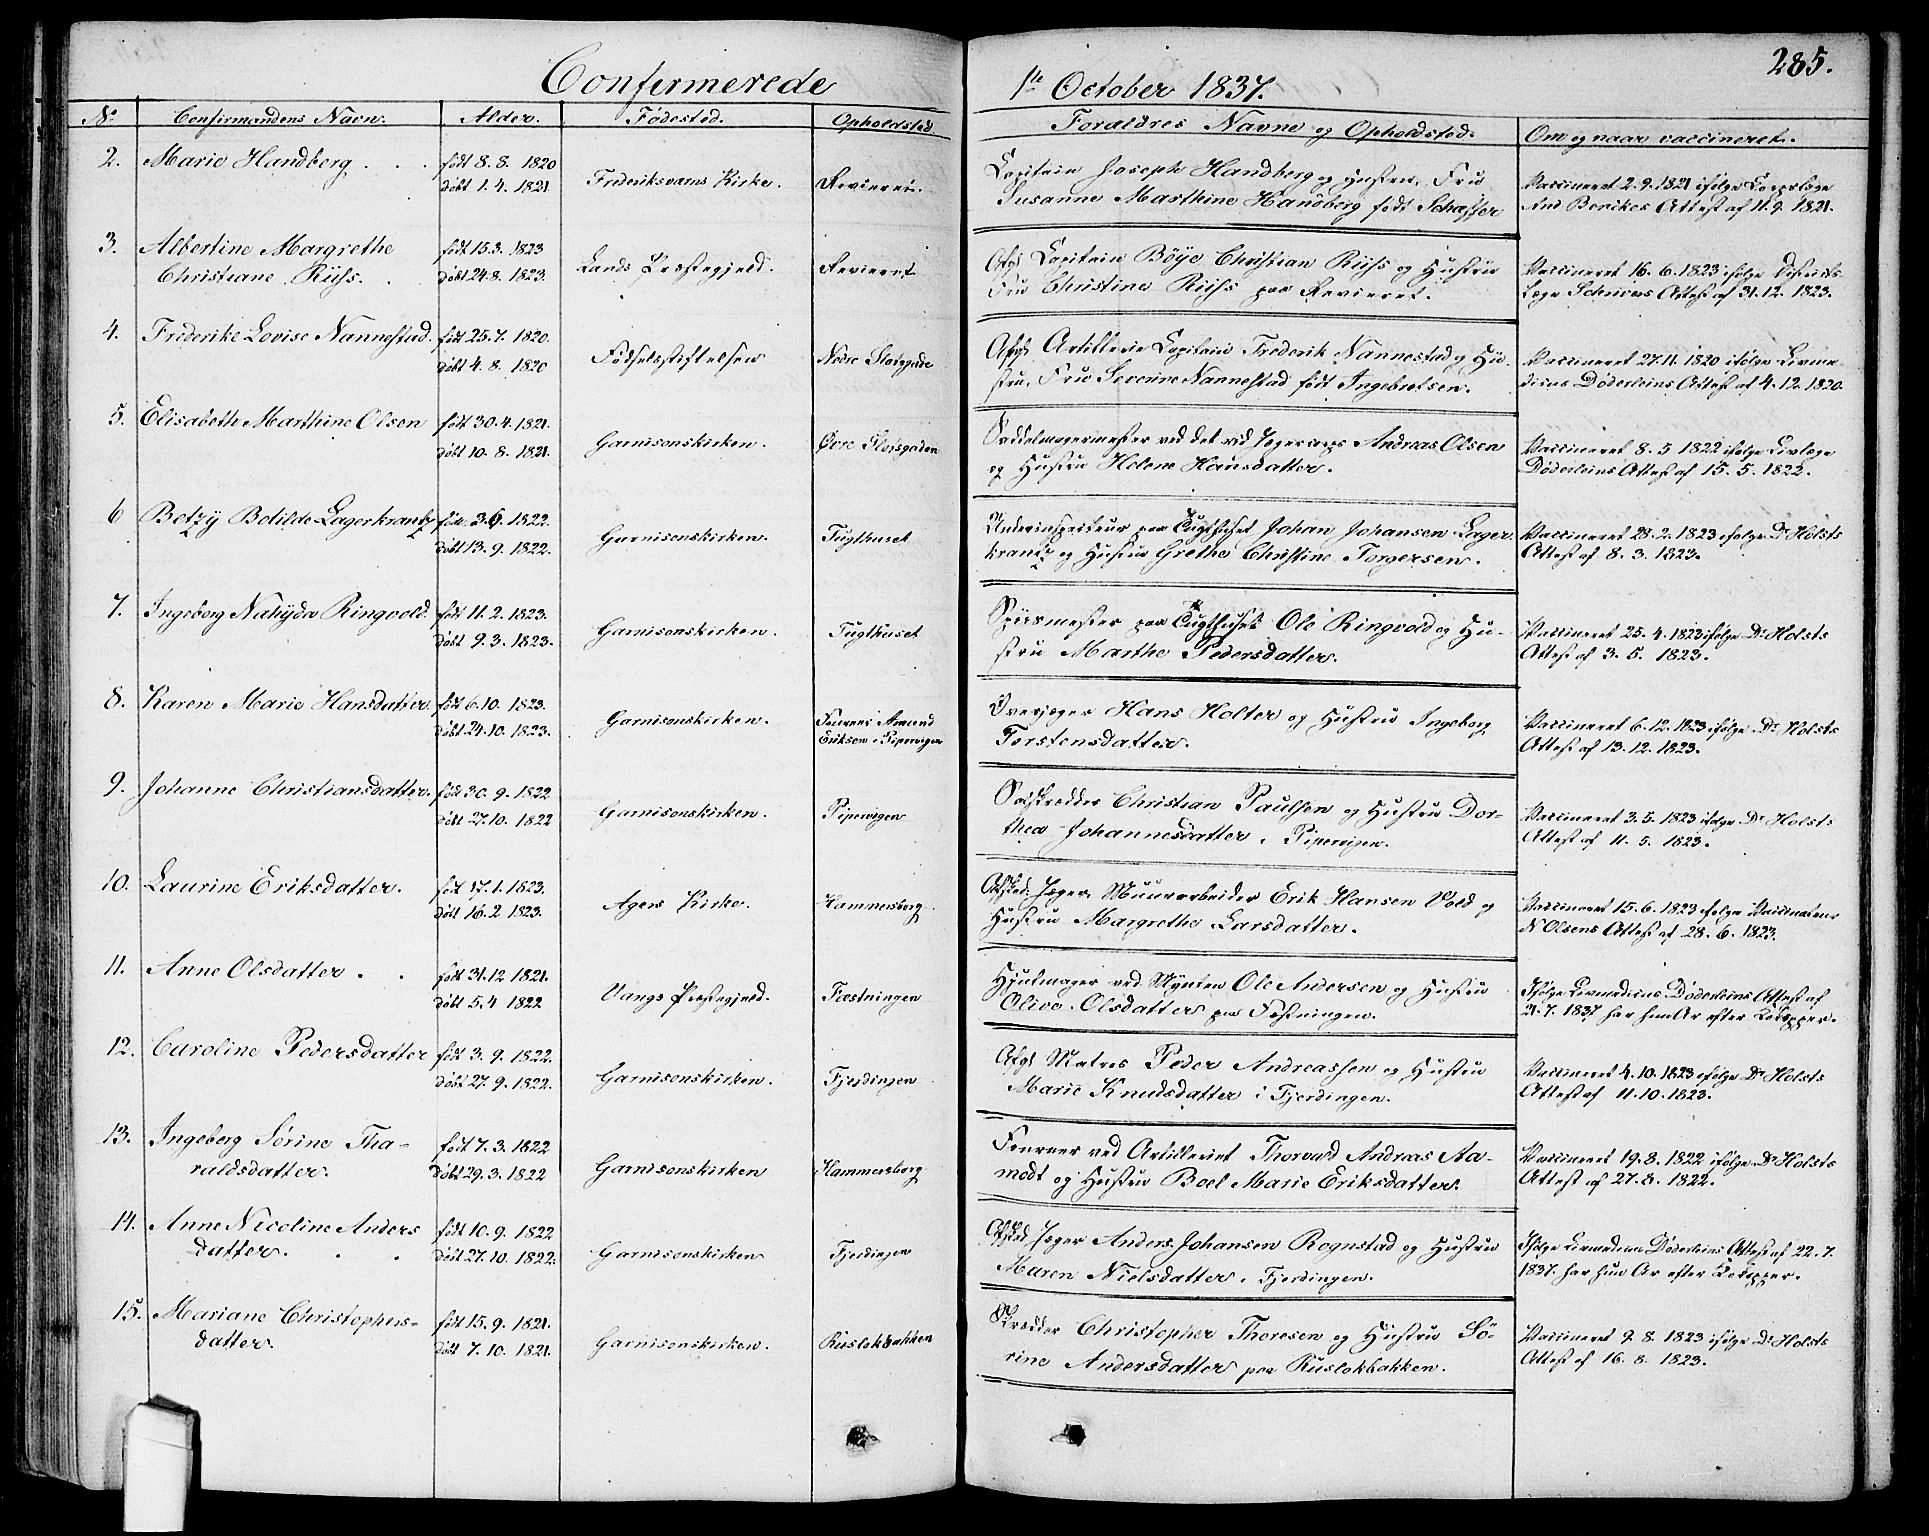 Confirmerede
1te October 1837.
285.
No
Confirmandens Navn.
Alder.
Fødested.
Opholdsted
Forældres Navne og Opholdsted.
Om og naar vaccineret.
2.
Marie Handberg
født 8. 8. 1820
døbt 1. 4. 1821
Frederiksværns Kirke.
Revieret.
Capitain Joseph Handberg og Hustru, Fru
Susanne Marthine Handberg født Schaffer
Vaccineret 2. 9. 1821 ifølge Corpslæge
Attest af 11. 9. 1821.
3.
Albertine Margrethe
Christiane Riiss.
født 15. 3. 1823
døbt 24. 8. 1823.
Lands Præstegjeld.
Revieret
Afgd Capitain Böye Christian Riiss og Hustru
Fru Christine Riiss paa Revieret.
Vaccineret 16. 6. 1823 ifølge Districts
Læge Schrivers Attest af 31. 12. 1823.
4.
Frederike Lovise Nannestad.
født 25. 7. 1820.
døbt 4. 8. 1820
Fødselsstiftelsen
Nedre Slotsgade
Afgd Artillerie Capitain Frederik Nannestad og Hu-
stru, Fru Severine Nannestad født Ingebretsen.
Vaccineret 27. 11. 1820 ifølge Livme-
dicus Døderleins Attest af 4. 12. 1820.
5.
Elisabeth Marthine Olsen
født 30. 4. 1821.
døbt 10. 8. 1821.
Garnisonskirken.
Øvre Slotsgaden
Saddelmagermester ved det rid. Jægercorps Andreas Olsen
og Hustru Helene Hansdatter.
Vaccineret 8. 5 1822 ifølge Livlæge
Døderleins Attest af 15. 5. 1822.
6
Betzÿ Botilde Lagerkrantz
født 3. 6. 1822.
døbt 13. 9. 1822.
Garnisonskirken.
Tugthuset
Underinspecteur paa Tugthuset Johan Johansen Lager-
krantz og Hustru Grethe Christine Torgersen.
Vaccineret 28. 2. 1823 ifølge Dr Holsts
Attest af 8. 3. 1823.
7.
Ingeborg Nahÿda Ringvold.
født 11. 2. 1823.
døbt 9. 3. 1823.
Garnisonskirken.
Tugthuset
Spiismester paa Tugthuset Ole Ringvold og Hu-
stru Marthe Pedersdatter.
Vaccineret 25. 4. 1823 ifølge Dr Holsts
Attest af 3. 5. 1823.
8.
Karen Marie Hansdatter.
født 6. 10. 1823.
døbt 24. 10. 1823.
Garnisonskirken.
Fourer Amund
Eriksen i Pipervigen
Overjæger Hans Holter og Hustru Ingeborg
Torstensdatter.
Vaccineret 6. 12. 1823 ifølge Dr Holsts
Attest af 13. 12. 1823.
9.
Johanne Christiansdatter.
født 30. 9. 1822
døbt 27. 10. 1822
Garnisonskirken.
Pipervigen
Christian Paulsen og Hustru Dor-
thea Johannesdatter i Pipervigen.
Vaccineret 3. 5. 1823 ifølge Dr Holsts
Attest af 11. 5. 1823.
10.
Laurine Eriksdatter.
født 17. 1. 1823.
døbt 16. 2 1823.
Agers Kirke.
Hammersborg
Afsked. Jæger, Muurarbeider Erik Hansen Vold og
Hustru Margrethe Larsdatter.
Vaccineret 15. 6. 1823 ifølge Vaccinateur
N Olsens Attest af 28. 6. 1823.
11.
Anne Olsdatter
født 31. 12 1821.
døbt 5. 4 1822
Vangs Præstegjeld.
Fæstningen
Hjulmager ved Mynten Ole Andersen og Hustru
Olive Olsdatter paa Fæstningen.
Ifølge Livmedicus Døderleins Attest af
21. 7. 1837 har hun Ar efter Kokopper.
12.
Caroline Pedersdatter
født 3. 9. 1822.
døbt 27. 9. 1822.
Garnisonskirken.
Fjerdingen
Afgd Matros Peder Andreassen og Hustru
Marie Knudsdatter i Fjerdingen.
Vaccineret 4. 10. 1823 ifølge Dr Holsts
Attest af 11. 10. 1823.
13.
Ingeborg Sørine Tha-
raldsdatter.
født 7. 3. 1822
døbt 29. 3. 1822
Garnisonskirken
Hammersborg
Fourer ved Artilleriet Thorvald Andreas Aa-
modt og Hustru Boel Marie Eriksdatter.
Vaccineret 19. 8. 1822 ifølge Dr Holsts
Attest af 27. 8. 1822.
14.
Anne Nicoline Anders
datter.
født 10. 9. 1822
døbt 27. 10. 1822.
Garnisonskirken
Fjerdingen
Afsked Jæger Anders Johansen Rognstad og Hustru
Maren Nielsdatter i Fjerdingen.
Ifølge Livmedicus Døderleins Attest af 22. 7.
1837. har hun Ar efter Kokopper.
15.
Mariane Christophers-
datter.
født 15. 9. 1821.
døbt 7. 10. 1821.
Garnisonskirken.
Ruslokbakken
Skrædder Christopher Thoresen og Hustru Sö-
rine Andersdatter paa Ruslokbakken.
Vaccineret 9. 8. 1823 ifølge Dr Holsts
Attest af 16. 8. 1823.